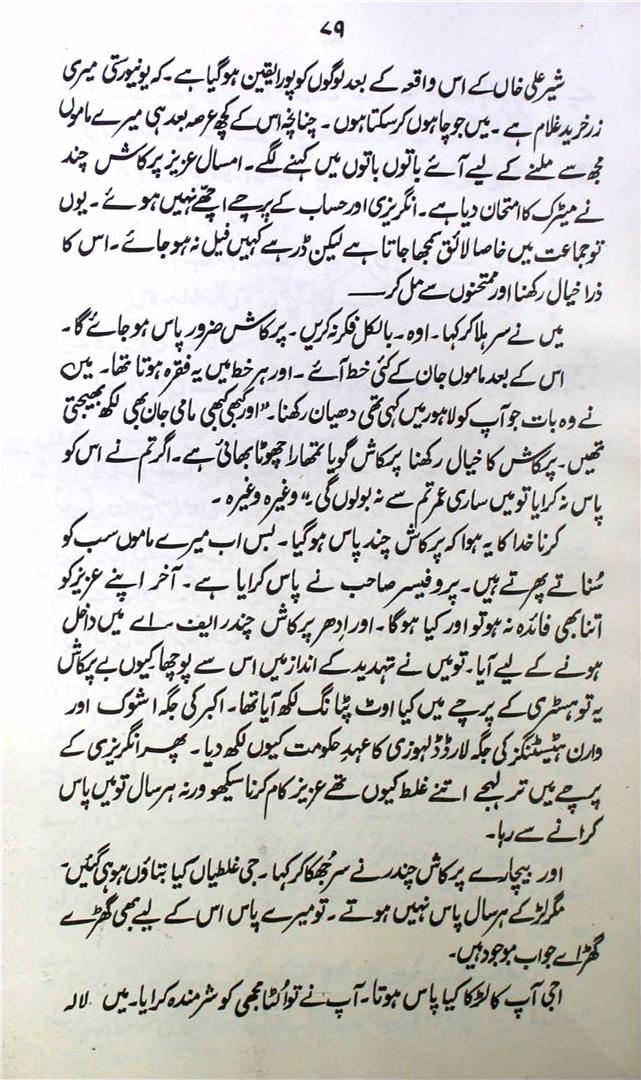 ۷۹
شیر علی خاں کے اس واقعہ کے بعد لوگوں کو پورا یقین ہو گیا ہے ۔ کہ یونیورسٹی میری
زر خرید غلام ہے ۔ میں جو چاہوں کر سکتا ہوں ۔ چنانچہ اس کے کچھ عرصہ بعد ہی میرے ماموں
مجھ سے ملنے کے لیے آئے باتوں باتوں میں کہنے لگے ۔ امسال عزیز پرکاش چند
نے میٹرک کا امتحان دیا ہے ۔ انگریزی اور حساب کے پرچے اچھے نہیں ہوئے ۔ یوں
تو جماعت میں خاصا لائق سمجھا جاتا ہے لیکن ڈر ہے کہیں فیل نہ ہو جائے ۔ اس کا
ذرا خیال رکھنا اور ممتحنوں سے مل کر ——
میں نے سر ہلا کر کہا ۔ اوہ ۔ بالکل فکر نہ کریں ۔ پرکاش ضرور پاس ہو جائے گا ۔
اس کے بعد ماموں جان کے کئی خط آئے ۔ اور ہر خط میں یہ فقرہ ہوتا تھا ۔ میں
نے وہ بات جو آپ کو لاہور میں کہی تھی دھیان رکھنا ۔" اور کبھی کبھی مامی جان بھی لکھ بھیجتی
تھیں ۔ پرکاش کا خیال رکھنا پرکاش گویا تمھارا چھوٹا بھائی ہے ۔ اگر تم نے اس کو
پاس نہ کرایا تو میں ساری عمر تم سے نہ بولوں گی ۔" وغیرہ وغیرہ ۔
کرنا خدا کا یہ ہوا کہ پرکاش چند پاس ہو گیا ۔ بس اب میرے ماموں سب کو
سُناتے پھرتے ہیں ۔ پروفیسر صاحب نے پاس کرایا ہے ۔ آخر اپنے عزیز کو
اتنا بھی فائدہ نہ ہو تو اور کیا ہو گا ۔ اور اِدھر پرکاش چندر ایف ۔ اے میں داخل
ہونے کے لیے آیا ۔ تو میں نے تہدید کے انداز میں اس سے پوچھا کیوں بے پرکاش
یہ تو ہسٹری کے پرچے میں کیا اوٹ پٹانگ لکھ آیا تھا ۔ اکبر کی جگہ اشوک اور
وارن ہیسٹنگز کی جگہ لارڈ ڈلہوزی کا عہدِ حکومت کیوں لکھ دیا ۔ پھر انگریزی کے
پرچے میں ترے ہجے اتنے غلط کیوں تھے عزیز کام کرنا سیکھو ورنہ ہر سال تو میں پاس
کرانے سے رہا ۔
اور بیچارے پرکاش چندر نے سر جُھکا کر کہا ۔ جی غلطیاں کیا بتاؤں ہو ہی گئیں ۔
مگر لڑکے ہر سال پاس نہیں ہوتے ۔ تو میرے پاس اس کے لیے بھی گھڑے
گھڑائے جواب موجود ہیں ۔
اجی آپ کا لڑکا کیا پاس ہوتا ۔ آپ نے تو اُلٹا مجھی کو شرمندہ کرایا ۔ میں لالہ